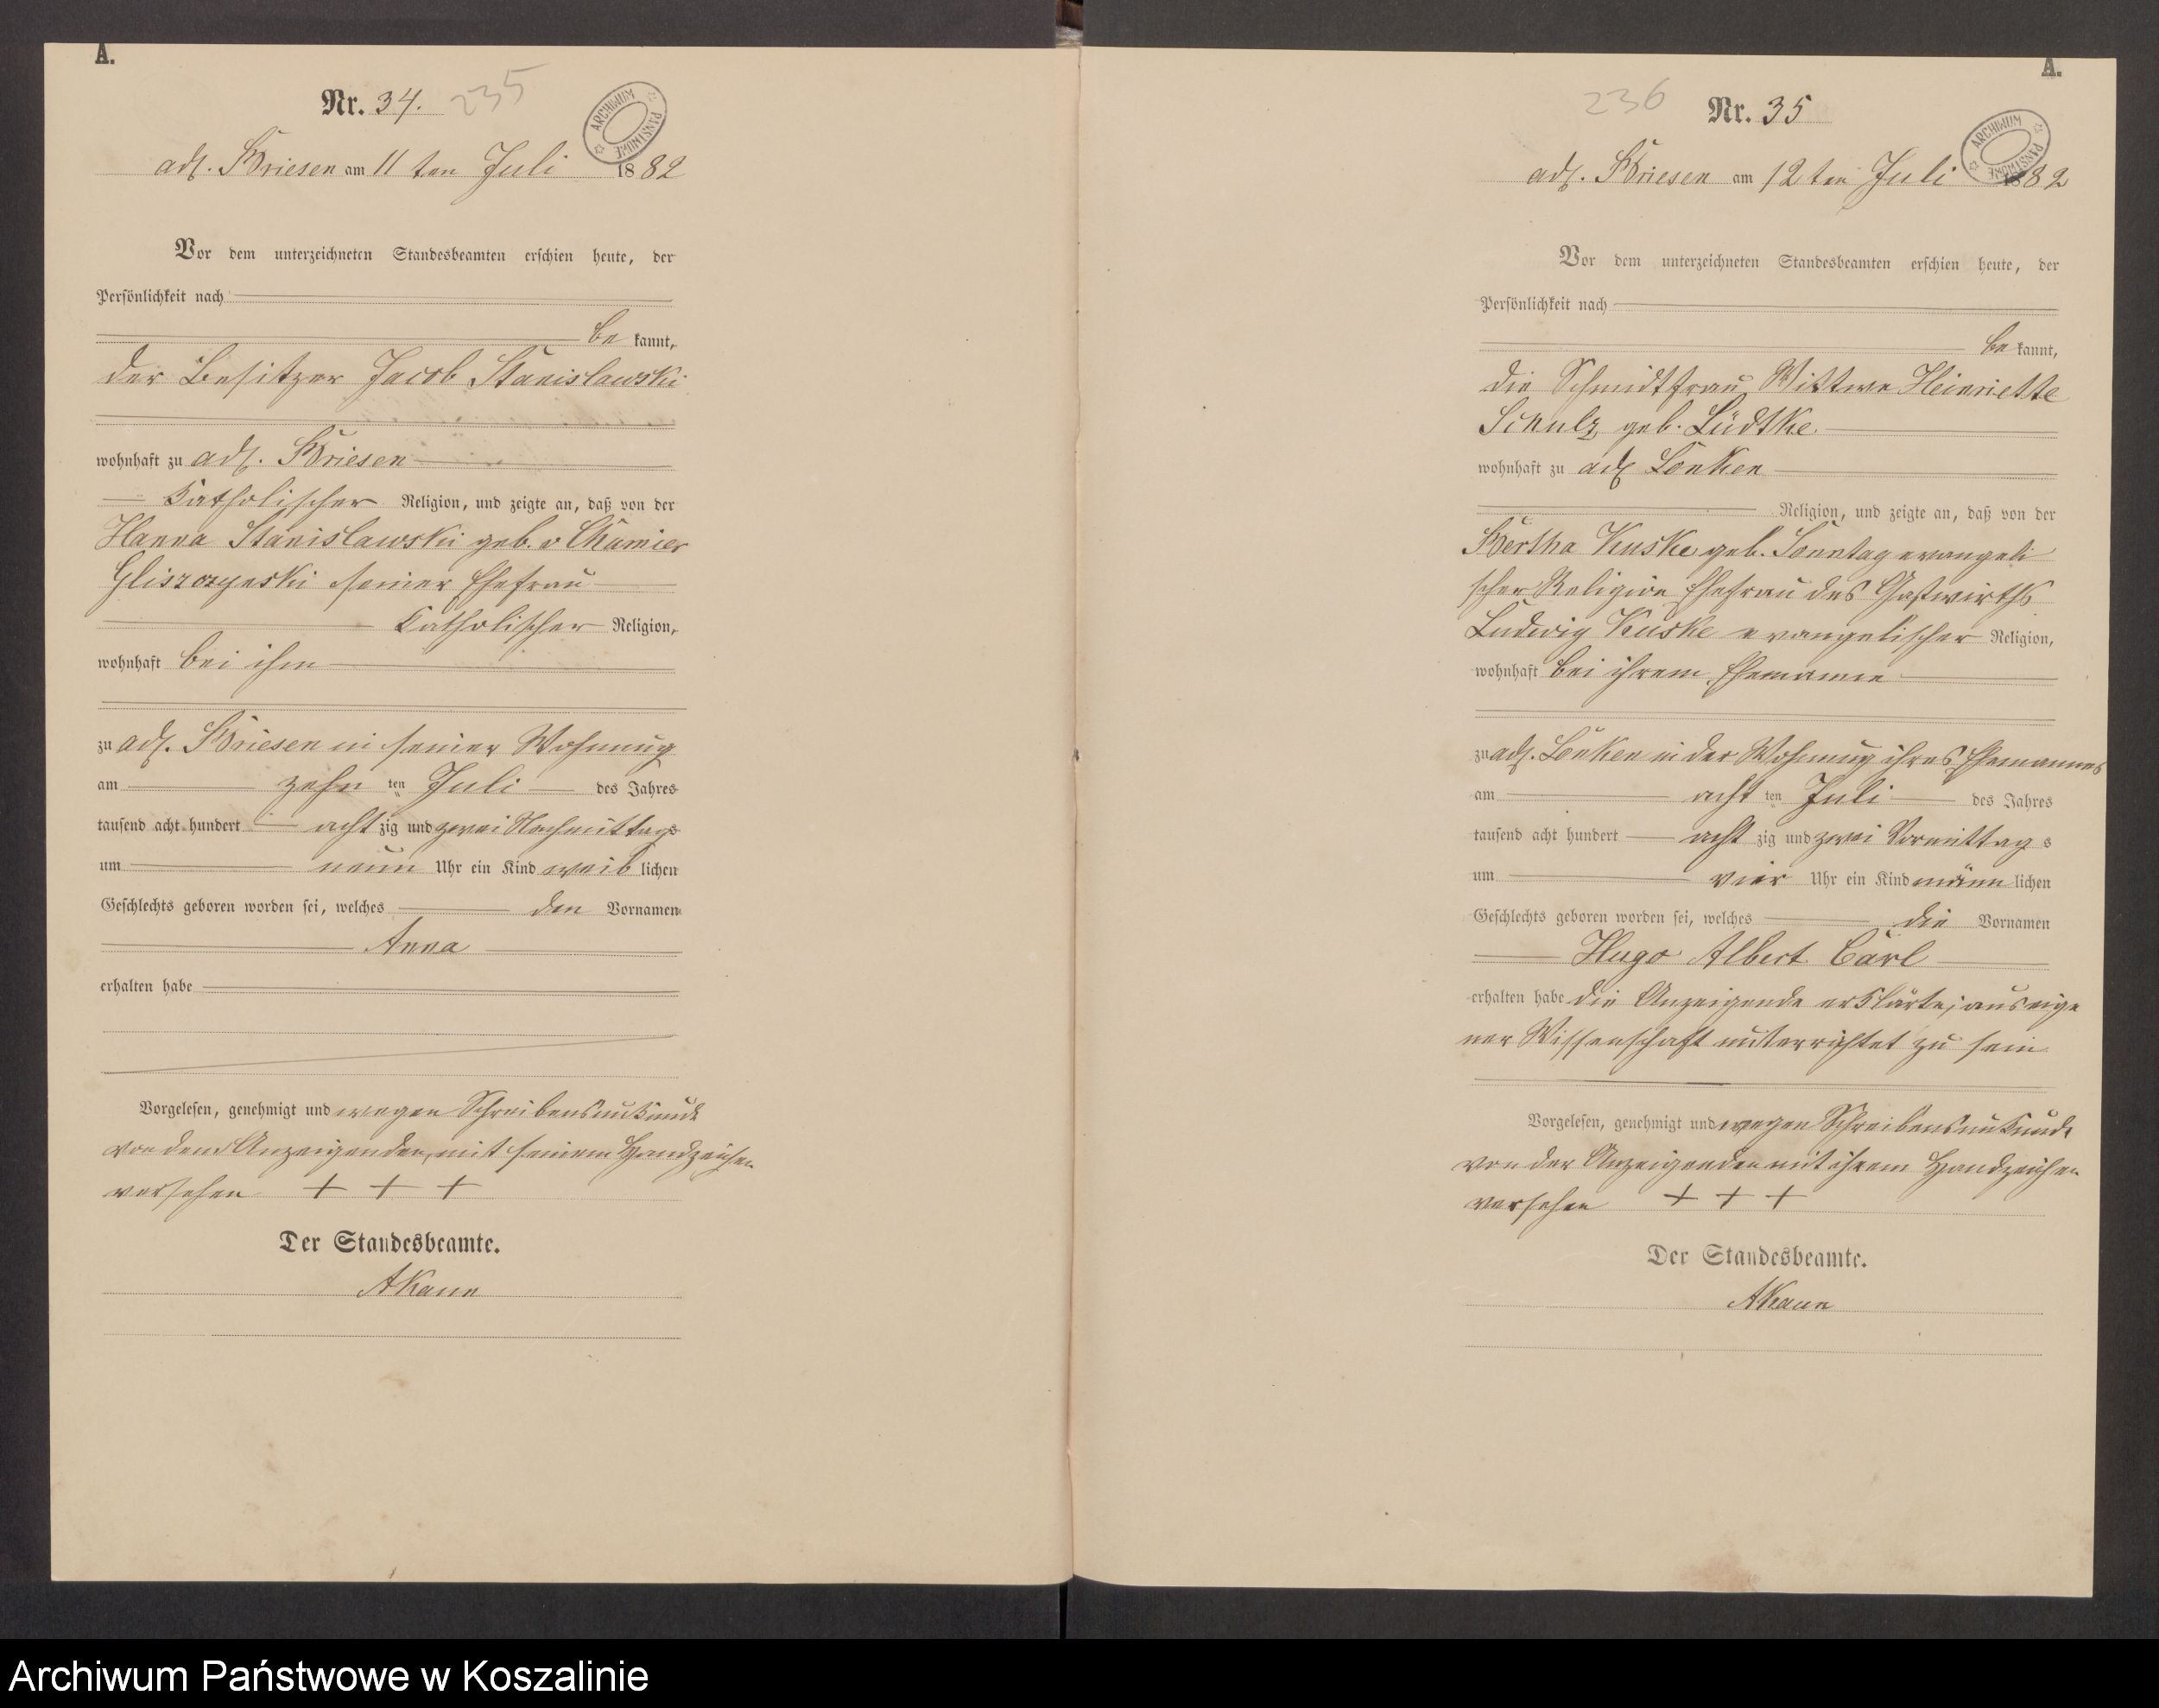 A.
Nr. 34.
235
ARCHIWUM PAŃSTWOWE
adl. Briesen am 11 ten Juli 1882
Vor dem unterzeichneten Standesbeamten erschien heute, der
Persönlichkeit nach
be kannt,
der Besitzer Jacob Stanislawski
wohnhaft zu adl. Briesen
Katholischer Religion, und zeigte an, daß von der
Hanna Stanislawski geb. v Chamier
Gliszczynski seiner Ehefrau
Katholischer Religion,
wohnhaft bei ihm
zu adl. Briesen in seiner Wohnung
am zehn ten Juli des Jahres
tausend acht hundert acht zig und zwei Nachmittags
um neun Uhr ein Kind weib lichen
Geschlechts geboren worden sei, welches den Vornamen
Anna
erhalten habe
Vorgelesen, genehmigt und wegen Schreibensunkunde
von dem Anzeigenden, mit seinem Handzeichen
versehen + + +
Der Standesbeamte.
AKann
A.
236
Nr. 35
ARCHIWUM PAŃSTWOWE
adl. Briesen am 12 ten Juli 1882
Vor dem unterzeichneten Standesbeamten erschien heute, der
Persönlichkeit nach
be kannt,
die Schmidtfrau Wittwe Heinriette
Schulz geb. Lüdtke
wohnhaft zu adl Lonken
Religion, und zeigte an, daß von der
Bertha Kuske geb. Sonntag evangeli
scher Religion Ehefrau des Gastwirths
Ludwig Kuske evangelischer Religion,
wohnhaft bei ihrem Ehemanne
zu adl. Lonken in der Wohnung ihres Ehemannes
am acht ten Juli des Jahres
tausend acht hundert acht zig und zwei Vormittag s
um vier Uhr ein Kind männ lichen
Geschlechts geboren worden sei, welches die Vornamen
Hugo Albert Carl
erhalten habe die Anzeigende erklärte, aus eige
ner Wissenschaft unterrichtet zu sein
Vorgelesen, genehmigt und wegen Schreibensunkunde
von der Anzeigenden mit ihrem Handzeichen
versehen + + +
Der Standesbeamte.
AKann
Archiwum Państwowe w Koszalinie